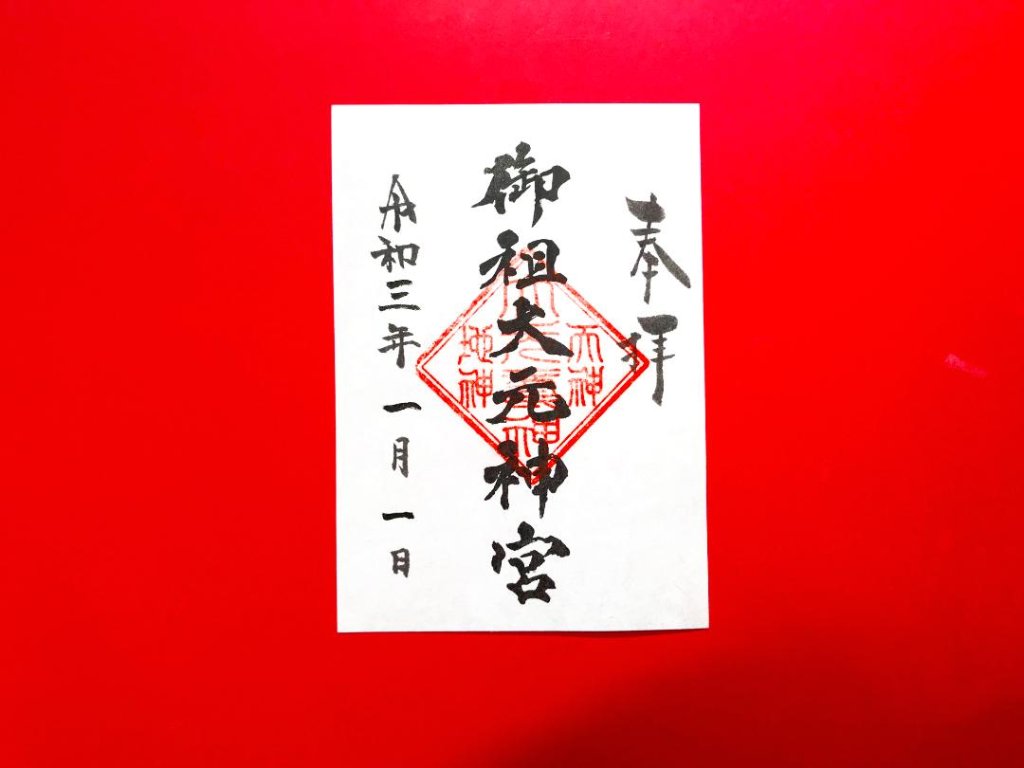 奉拝
御祖大元神宮
天神
地神
令和三年一月一日